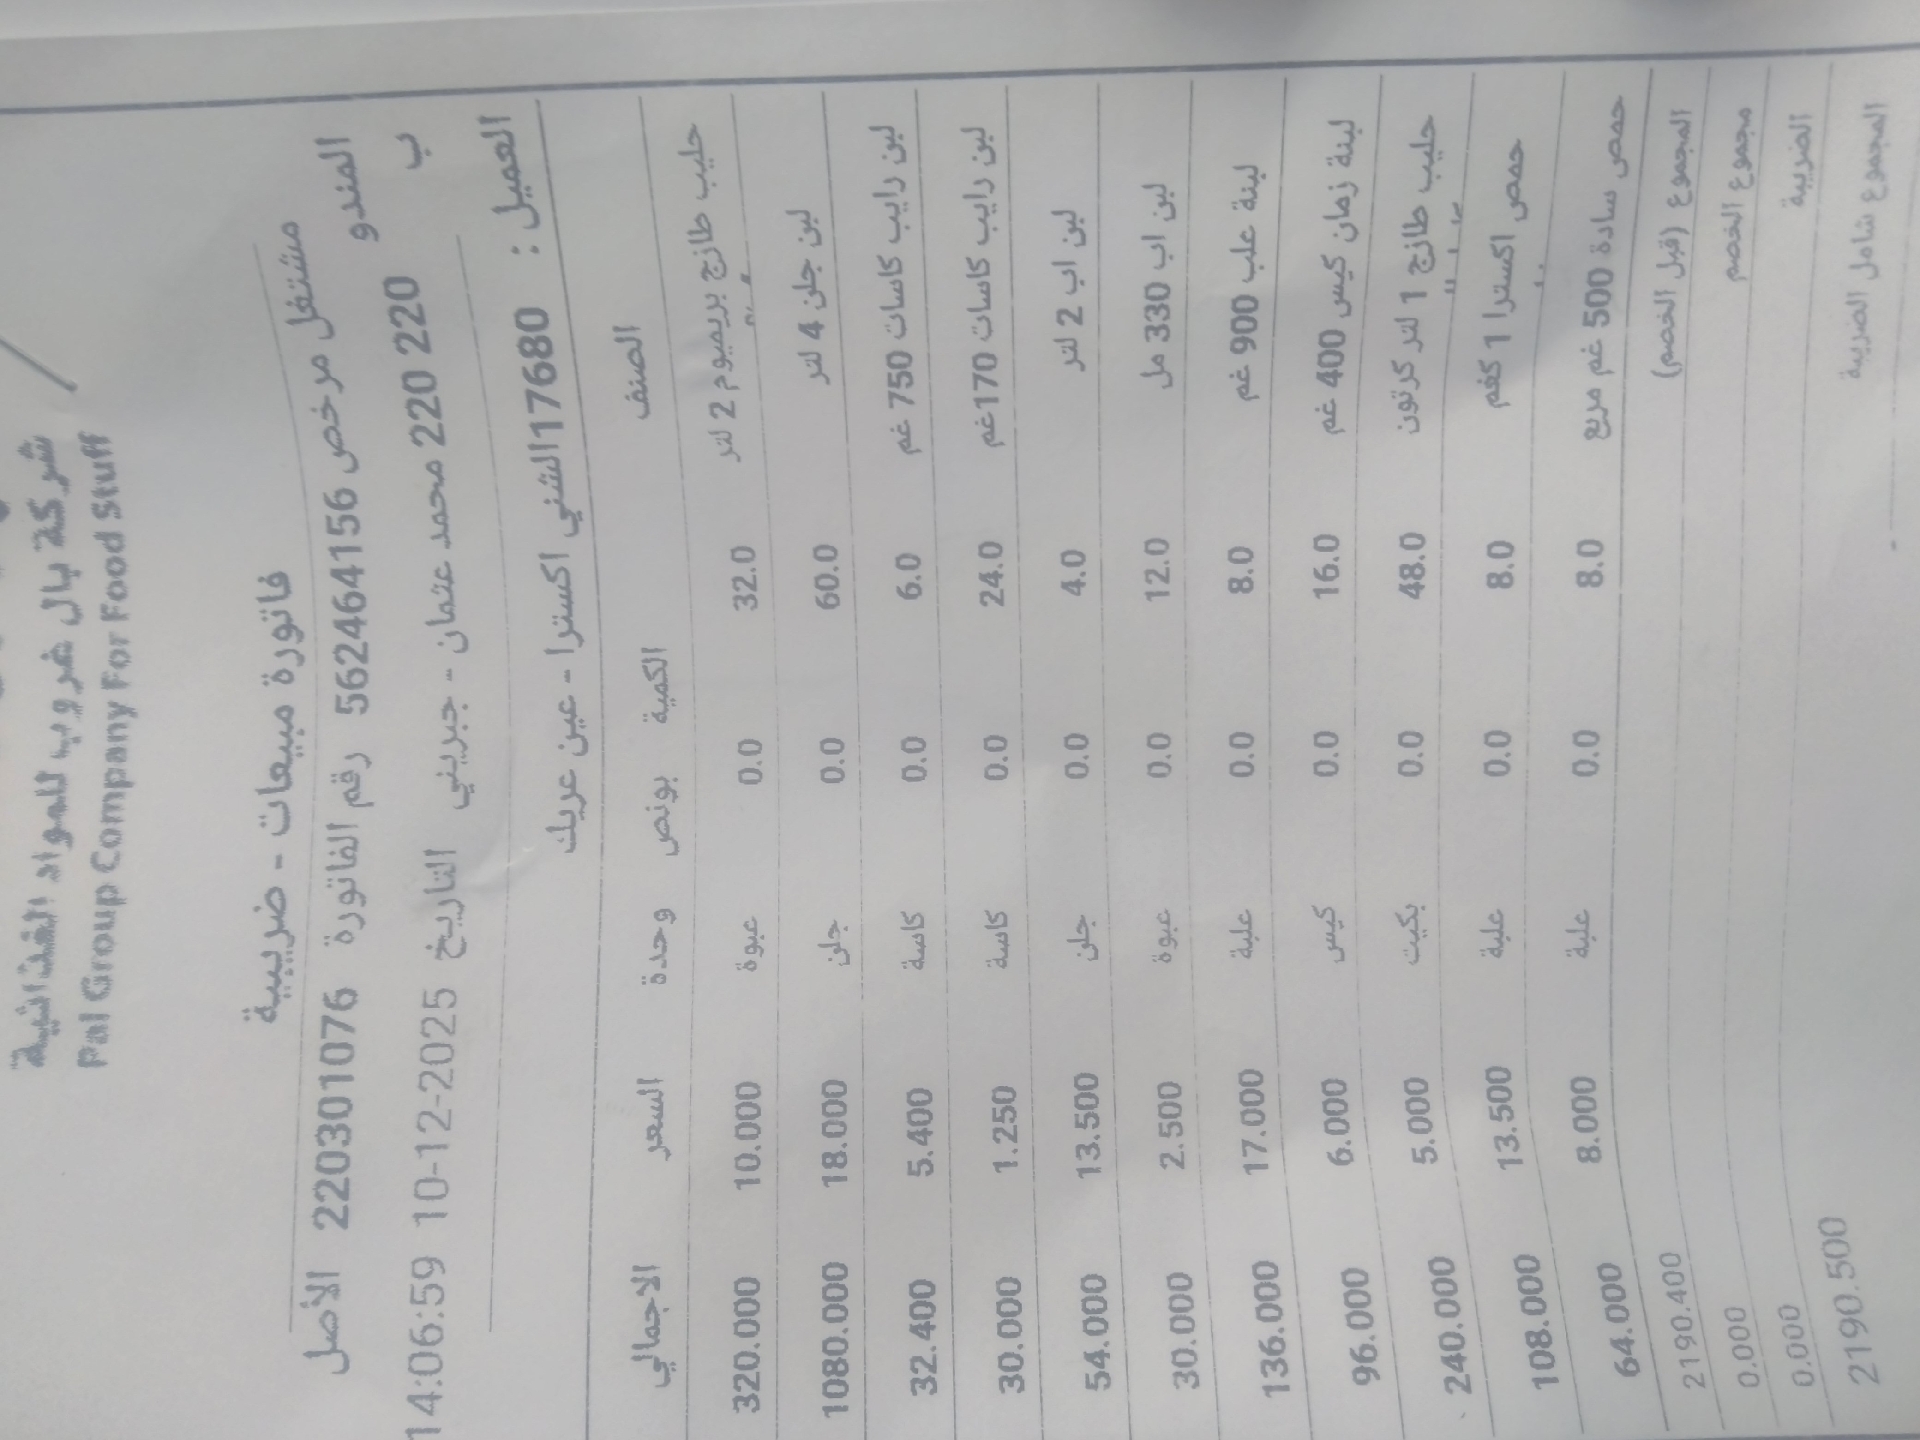 شركة بال غروب للمواد الغذائية
Pal Group Company For Food Stuff
فاتورة مبيعات - ضريبية
مشتغل مرخص 562464156 رقم الفاتورة 220301076 الأصل
المندوب 220 220 محمد عثمان - جبريني التاريخ 10-12-2025 14:06:59
العميل : 17680 الشني اكسترا - عين عريك
الصنف الكمية بونص وحدة السعر الاجمالي
حليب طازج بريميوم 2 لتر 32.0 0.0 عبوة 10.000 320.000
لبن جلن 4 لتر 60.0 0.0 جلن 18.000 1080.000
لبن رايب كاسات 750 غم 6.0 0.0 كاسة 5.400 32.400
لبن رايب كاسات 170غم 24.0 0.0 كاسة 1.250 30.000
لبن اب 2 لتر 4.0 0.0 جلن 13.500 54.000
لبن اب 330 مل 12.0 0.0 عبوة 2.500 30.000
لبنة علب 900 غم 8.0 0.0 علبة 17.000 136.000
لبنة زمان كيس 400 غم 16.0 0.0 كيس 6.000 96.000
حليب طازج 1 لتر كرتون 48.0 0.0 بكيت 5.000 240.000
حمص اكسترا 1 كغم 8.0 0.0 علبة 13.500 108.000
حمص سادة 500 غم مربع 8.0 0.0 علبة 8.000 64.000
المجموع (قبل الخصم) 2190.400
مجموع الخصم 0.000
الضريبة 0.000
المجموع شامل الضريبة 2190.500